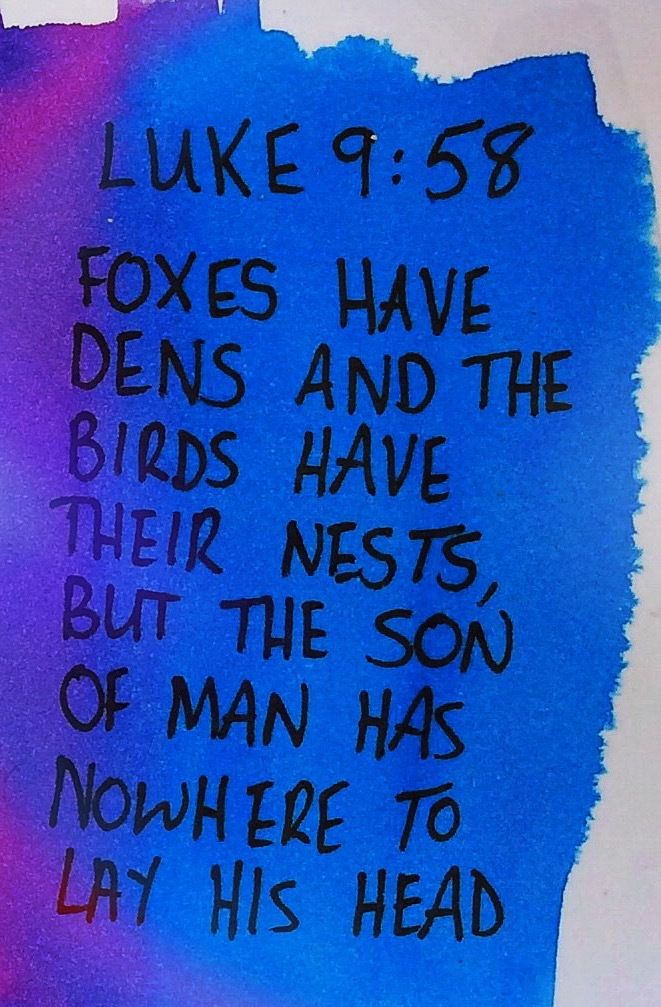 LUKE 9:58
FOXES HAVE
DENS AND THE
BIRDS HAVE
THEIR NESTS,
BUT THE SON
OF MAN HAS
NOWHERE TO
LAY HIS HEAD